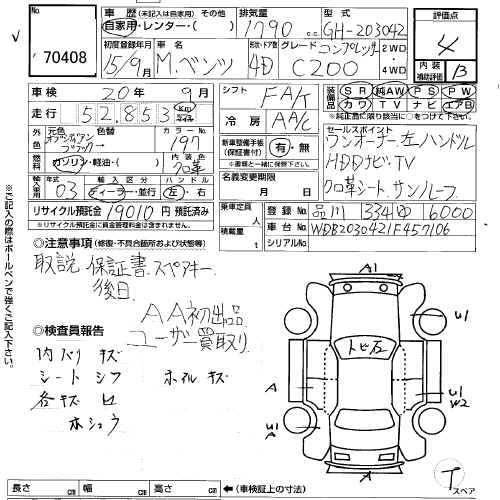 No.
70408
車歴 (未記入は自家用) その他
自家用・レンター・( )
排気量
1790
型式
GH-203042
評価点
4
内装
補助評価
B
初度登録年月
15/9月
車名
M.ベンツ
形状・ドア数
4D
グレード
コンプレッサー
C200
2WD
4WD
車検
20年 9月
シフト
FA/T
装備品
SR 純AW PS PW
カワ TV ナビ エアB
走行
52,853
km
マイル
冷房
AA/C
*純正品に限り該当に○をして下さい
外色
元色
色替
カラーNo.
197
新車整備手帳
(保証書付)
有・無
セールスポイント
ワンオーナー左ハンドル
HDDナビ.TV
クロ革シート.サンルーフ
燃料
ガソリン・軽油・( )
内装色
クロ革
輸入車用
03
輸入区分
ディーラー・並行
ハンドル
左・右
名義変更期限
月 日
リサイクル預託金 19010円 預託済み
乗車定員
人
登録No.
品川 334ゆ 6000
積載量
t
車台No.
WDB2030421F457106
シリアルNo.
◎注意事項 (修復・不具合箇所および状態等)
取説 保証書.スペアキー.
後日
AA初出品
ユーザー買取り
◎検査員報告
内ハリ キズ
シート シワ
ホイル キズ
各キズ 凹
ホシュウ
※ご記入の際はボールペンで強くご記入下さい。
A1
U1
トビ石
A
U1
W2
U1
A
A
長さ cm 幅 cm 高さ cm ←(車検証上の寸法)
T
スペア